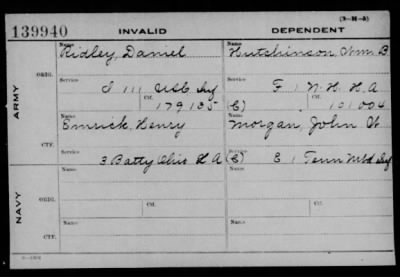 (3-31-5)
139940 INVALID DEPENDENT
ARMY
NAVY
ORIG.
CTF.
ORIG.
CTF.
Name Name
Ridley, Daniel Hutchinson Wm B
Service Service
I 111 USC Inf F 1 N. H. H A
Ctf. Ctf.
179105 (C) 101004
Name Name
Emrick, Henry Morgan, John W
Service Service
3 Batty Ohio H A (C) E 1 Tenn Mtd Inf
Name Name
Ctf. Ctf.
Name Name